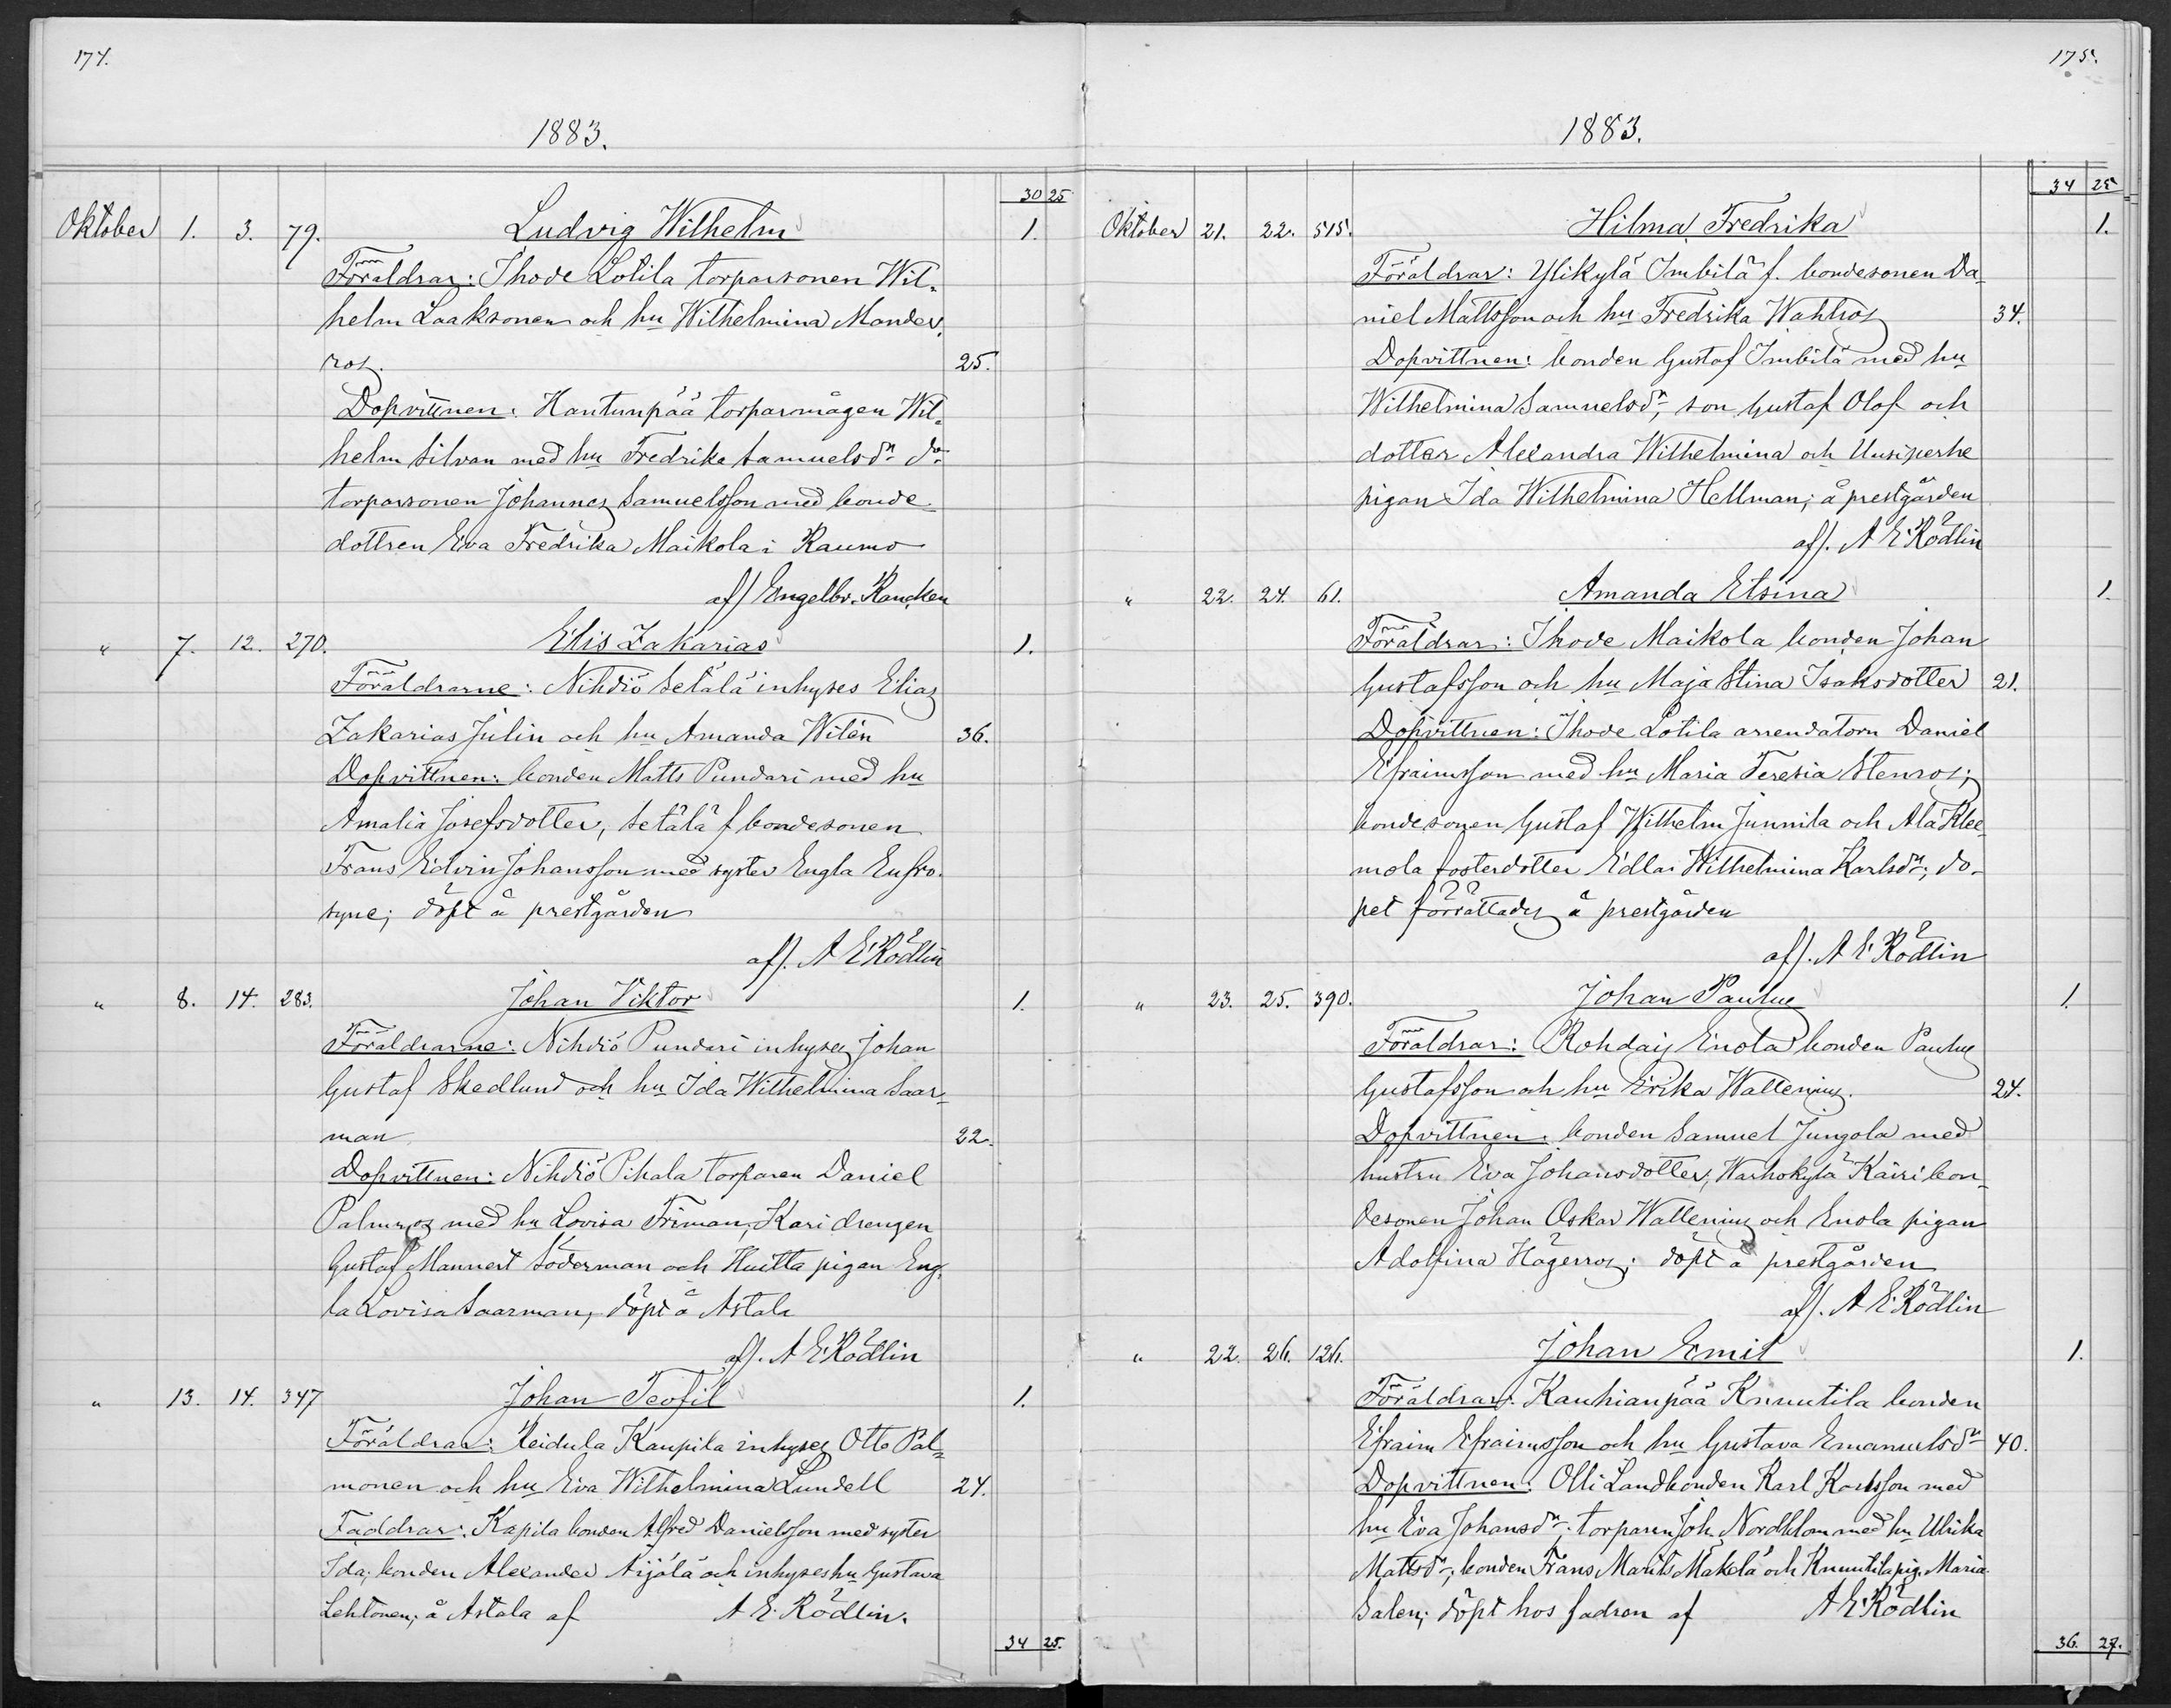 174.
1883.
30 25
Oktober 1. 3. 79. Ludvig Wilhelm 1.
Föräldrar: Ihode Lotila torparsonen Wil-
helm Laaksonen och hu Wilhelmina Mander-
ros. 25.
Dopvittnen: Hantunpää torparmågen Wil-
helm Silvan med hu Fredrika Samuelsdr do
torparsonen Johannes Samuelsson med bonde
dottren Eva Fredrika Maikola i Raumo
af/ Engelbr. Rancken
" 7. 12. 270. Elis Zakarias 1.
Föräldrarne: Nihdiö Setälä inhyses Elias
Zakarias Julin och hu Amanda Wilén 36.
Dopvittnen: bonden Matts Pundari med hu
Amalia Josefsdotter, Setälä f bondesonen
Frans Edvin Johansson med syster Engla Eufro-
syne; döpt å prestgården
af/. A E Rödlin
" 8. 14. 283. Johan Viktor 1.
Föräldrarne: Nihdiö Pundari inhyses Johan
Gustaf Skedlund och hu Ida Wilhelmina Saar-
man 22.
Dopvittnen: Nihdiö Pihala torparen Daniel
Palmros med hu Lovisa Friman, Kari drengen
Gustaf Mannert Söderman och Huitta pigan Eng-
la Lovisa Saarman, döpt å Astala
af/. A E Rödlin
" 13. 14. 347 Johan Teofil 1.
Föräldrar: Reidula Kaupila inhyses Otto Pal-
monen och hu Eva Wilhelmina Lundell 24.
Faddrar: Kapila bonden Alfred Danielsson med syster
Ida; bonden Alexander Äijälä och inhyses hu Gustava
Lehtonen; å Astala af A E. Rödlin.
34 25.
175.
1883.
34 25
Oktober 21. 22. 515. Hilma Fredrika 1.
Föräldrar: Ylikylä Imbilä f. bondesonen Da-
niel Mattsson och hu Fredrika Wahlros 34.
Dopvittnen: bonden Gustaf Imbilä med hu
Wilhelmina Samuelsdr, son Gustaf Olof och
dotter Alexandra Wilhelmina och Uusiperhe
pigan Ida Wilhelmina Hellman; å prestgården
af/. A E Rödlin
" 22. 24. 61. Amanda Elsina 1.
Föräldrar: Ihode Maikola bonden Johan
Gustafsson och hu Maja Stina Isaksdotter 21.
Dopvittnen: Ihode Lotila arrendatorn Daniel
Efraimsson med hu Maria Teresia Stenros;
bondesonen Gustaf Wilhelm Junnila och Ala Klee-
mola fosterdotter Edla Wilhelmina Karlsdr; do-
pet förrättades å prestgården
af/. A E Rödlin
" 23. 25. 390. Johan Paulus 1.
Föräldrar: Rohdais Enola bonden Paulus
Gustafsson och hu Erika Wallenius. 24.
Dopvittnen: bonden Samuel Jungola med
hustru Eva Johansdotter, Warhokylä Käiri bon-
desonen Johan Oskar Wallenius och Enola pigan
Adolfina Hägerros; döpt å prestgården
af/. A E Rödlin
" 22. 26. 126. Johan Emil 1.
Föräldrar: Kauhianpää Knuutila bonden
Efraim Efraimsson och hu Gustava Emanuelsdr 40.
Dopvittnen: Olli Landbonden Karl Karlsson med
hu Eva Johansdr; torparen Joh. Nordblom med hu Ulrika
Mattsdr; bonden Frans Maurits Mäkelä och Knuutila pig. Maria
Salen; döpt hos fadren af A E Rödlin
36. 27.